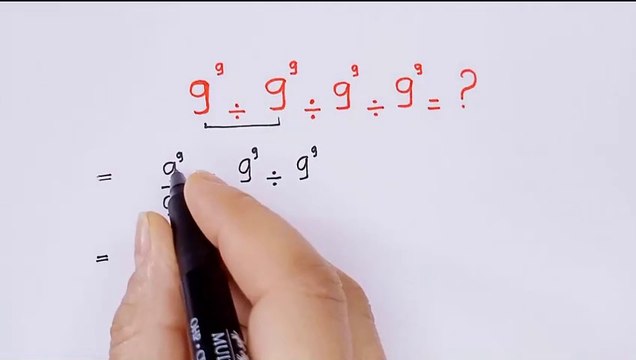 9⁹ ÷ 9⁹ ÷ 9⁹ ÷ 9⁹ = ?
= 9⁹ 9⁹ ÷ 9⁹
=
MU